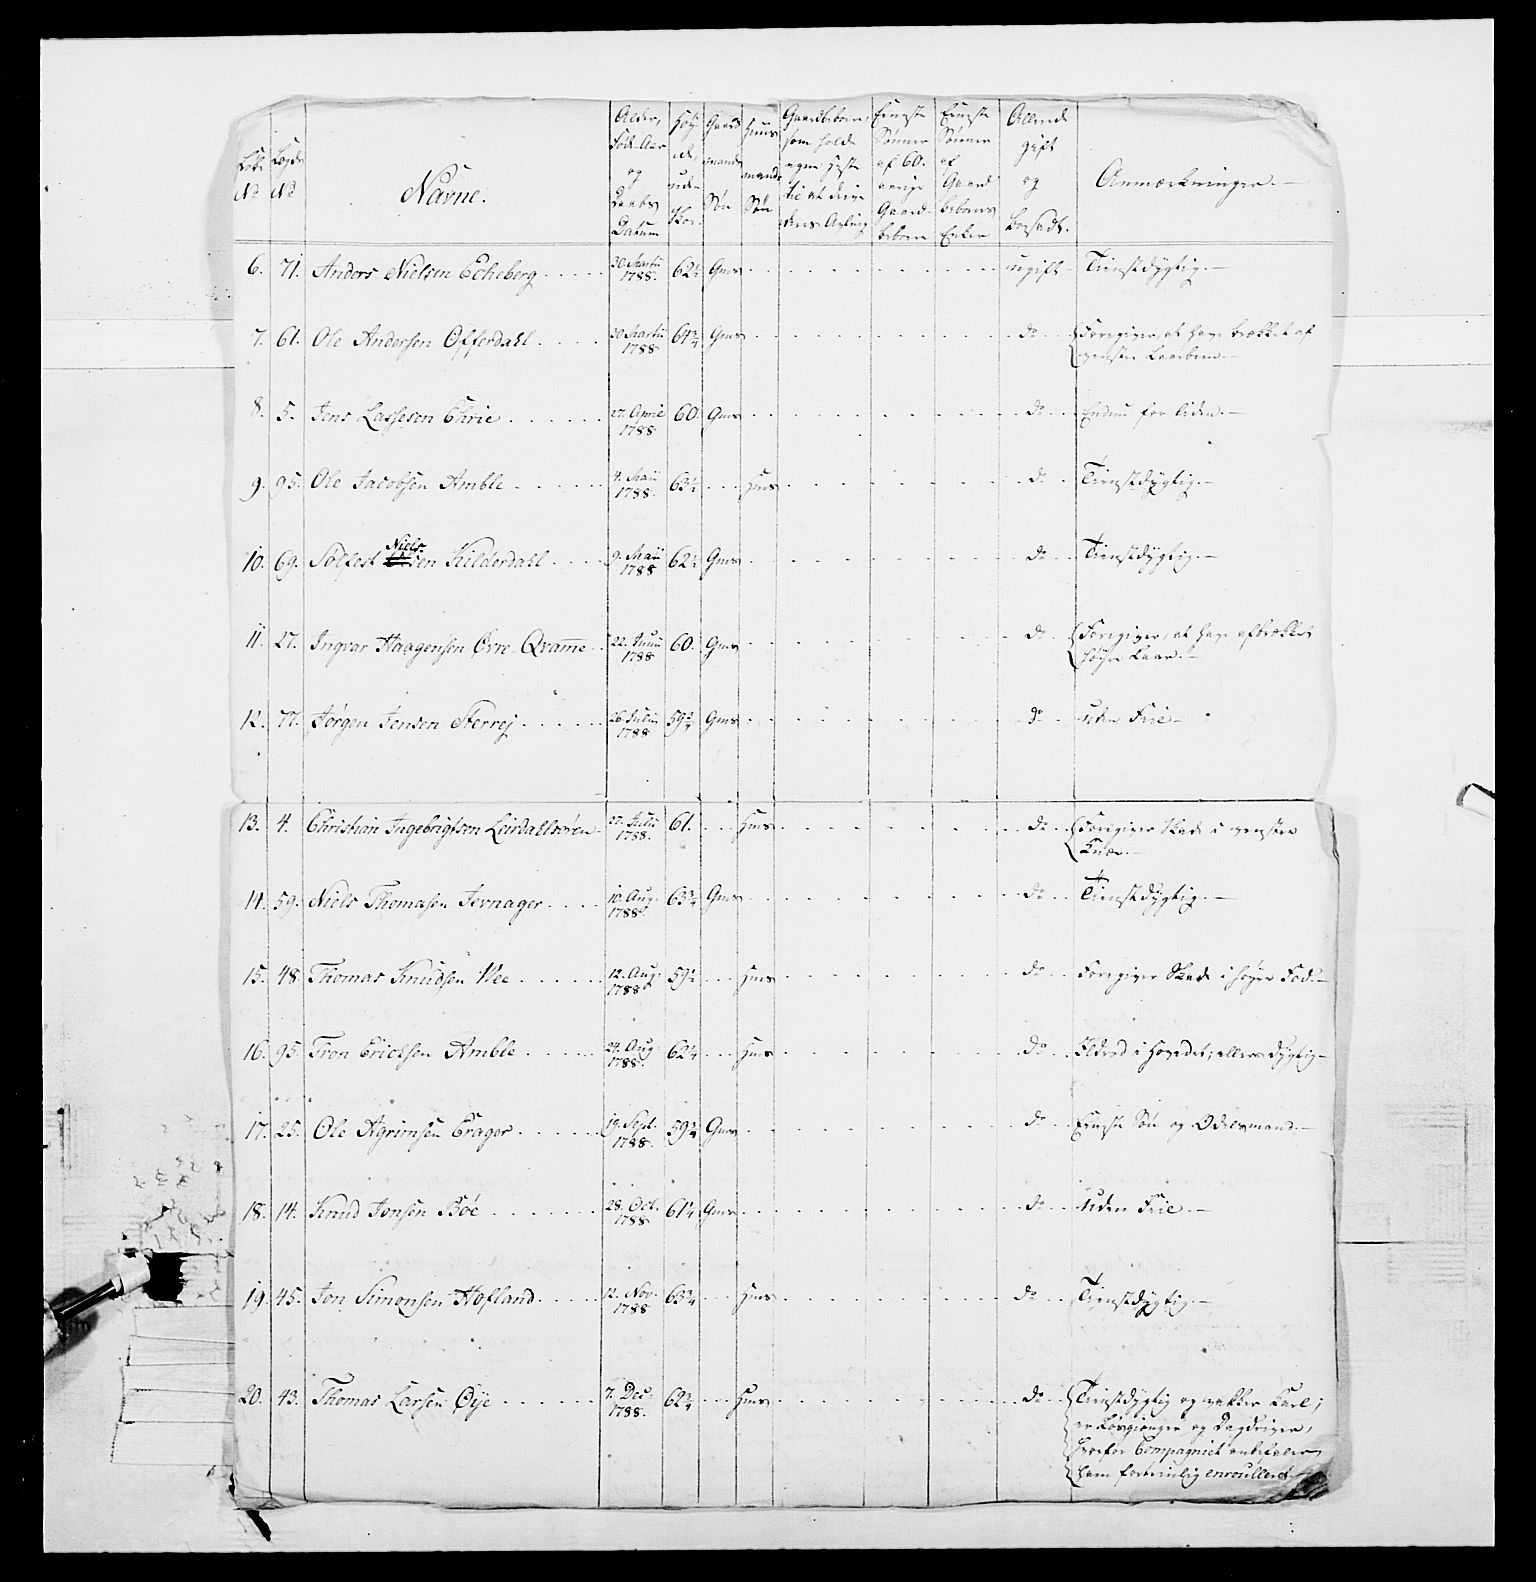 Løbe No Lægds No Navne. Alder, Føde-Aar og Daabs Datum Høyde, uden Skoe. Gaardmands Søn Huusmands Søn Gaardbeboere, som holde egen Heste til at drive deres Avling Eeneste Sønner af 60. aarige Gaardbeboere Eeneste Sønner af Gaardbeboeres Enker Allerede gift og bosadt. Anmærkninger.
6. 71. Anders Nielsen Echeberg 30. Martii 1788. 62½ Gmds ugift Tienstdygtig.
7. 61. Ole Andersen Offerdahl 30. Martii 1788 61¾ Gmds do Foregiver, at have brækket af venstre Laarbeen.
8. 5. Jens Lassesen Ehrie 27. April 1788 60. Gmds do Endnu for liden.
9. 95. Ole Jacobsen Amble 4. Maii 1788. 63½ Hmds do Tienstdygtig.
10. 69. Solfest Nielssen Kilderdahl 9. Maii 1788 62½ Gmds do Tienstdygtig.
11. 27. Ingvar Haagensen Øvre Qvamme 22. Junii 1788 60. Gmds do Foregiver, at have afbrækket høyre Laar.
12. 77. Jørgen Jensen Sterrej 26. Julii 1788 59¾ Gmds do uden Feil
13. 4. Christian Ingebrigtsen Leirdalsøren 27. Julii 1788. 61. Hmds do Foregiver Skade i venstre Knæe.
14. 59. Niels Thomasen Jernager 10. Aug. 1788 63¾ Gmds do Tienstdygtig.
15. 48 Thomas Knudsen Wee 12. Aug. 1788 59½ Hmds do Foregiver Skade i høyre Fod.
16. 95. Tron Ericksen Amble 24. Aug. 1788. 62¼ Hmds do Ildrød i Hovedet; ellers dygtig
17. 25. Ole Agrimsen Erager 19. Sept. 1788. 59¾ Gmds do Eeneste Søn og Odelsmand.
18. 14. Knud Jonsen Bøe 28. Oct. 1788 61¼ Gmds do uden Feil.
19. 45. Jon Simonsen Hofland 12. Nov. 1788 63¾ Hmds do Tienstdygtig.
20. 43. Thomas Larsen Øye 7. Dec: 1788. 62¾ Hmds do Tienstdygtig og vakker Karl;
er Løsgienger og Dagdriver,
hvorfor Compagniet anbefaler
ham fortrinlig enroulleret.